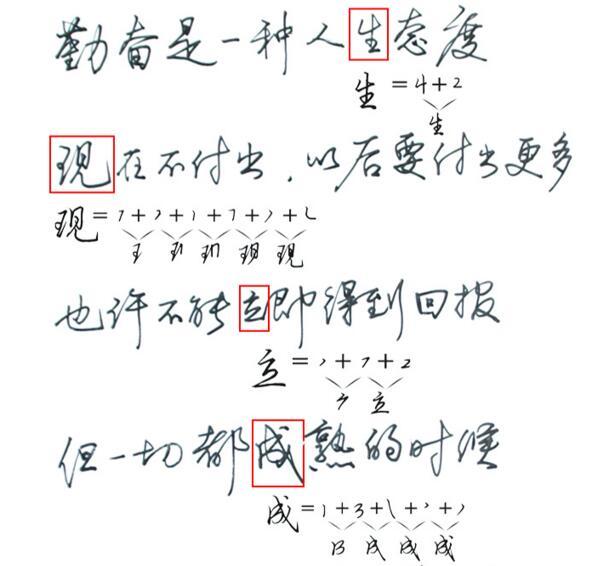 勤奋是一种人生态度
生 = 4 + 2
生
现在不付出，以后要付出更多
现 = 1 + 2 + 1 + 7 + 2 + L
王 现
也许不能立即得到回报
立 = 、 + 7 + 2
立
但一切都成熟的时候
成 = 1 + 3 + \ + 、 + 丿
成 成